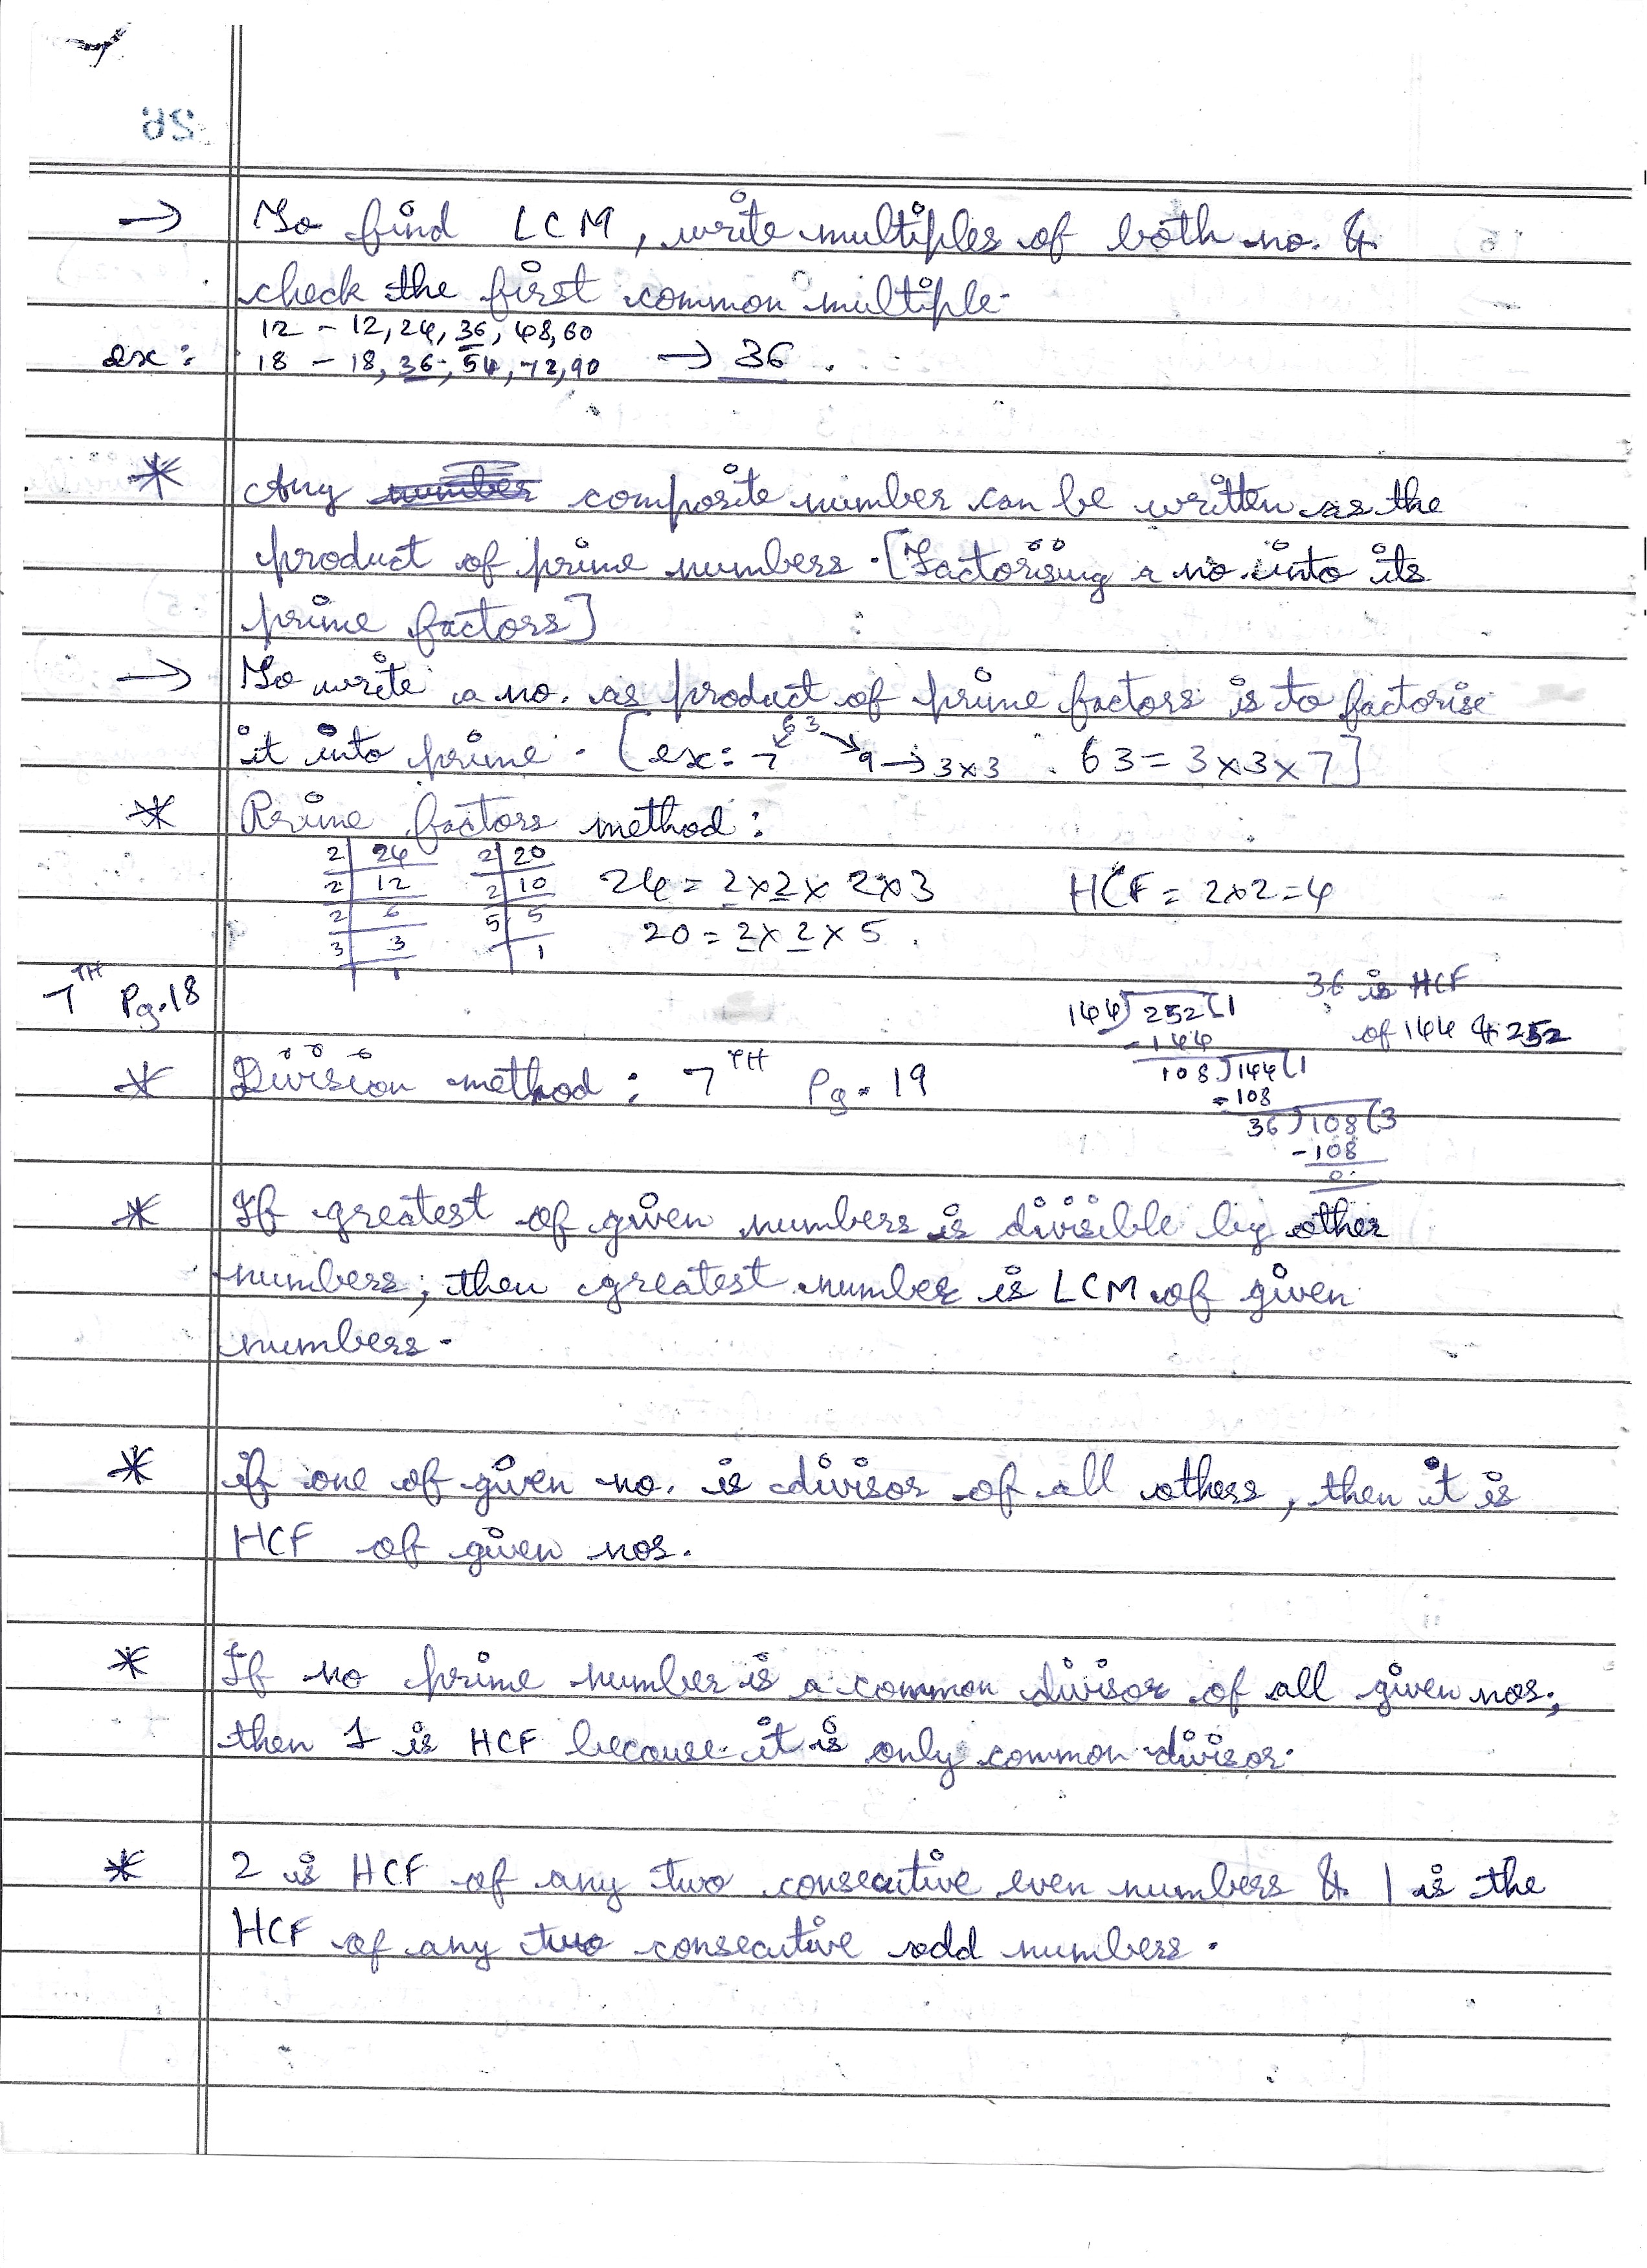 → To find LCM, write multiples of both no. &
check the first common multiple.
12 - 12, 24, 36, 48, 60
ex: 18 - 18, 36, 54, 72, 90 → 36.
* Any number composite number can be written as the
product of prime numbers. [Factorising a no. into its
prime factors]
→ To write a no. as product of prime factors is to factorise
it into prime. [ex: 63 7 9 → 3x3 . 63 = 3x3x7]
* Prime factors method:
2 24 2 20 24 = 2x2x2x3 HCF = 2x2=4
2 12 2 10
2 6 5 5 20 = 2x2x5.
3 3 1
1
7TH Pg.18
144)252(1 36 is HCF
-144 of 144 & 252
* Division method: 7TH Pg. 19 108)144(1
-108
36)108(3
-108
0
* If greatest of given numbers is divisible by other
numbers, then greatest number is LCM of given
numbers.
* if one of given no. is divisor of all others, then it is
HCF of given nos.
* If no prime number is a common divisor of all given nos;
then 1 is HCF because it is only common divisor.
* 2 is HCF of any two consecutive even numbers & 1 is the
HCF of any two consecutive odd numbers.